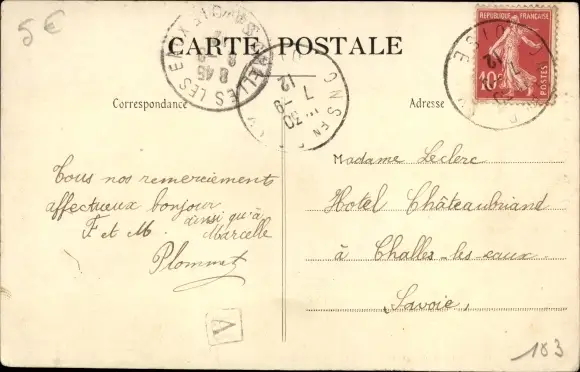 5€
CARTE POSTALE
Correspondance
Adresse
RÉPUBLIQUE FRANÇAISE
10c
POSTES
OISE
7 -9
12
CHALLES LES EAUX
8 45
Tous nos remerciements
affectueux bonjour
ainsi qu'à
F et M. Marcelle
Plommet
Madame Leclerc
Hotel Châteaubriand
à Challes-les-eaux
Savoie
A
183